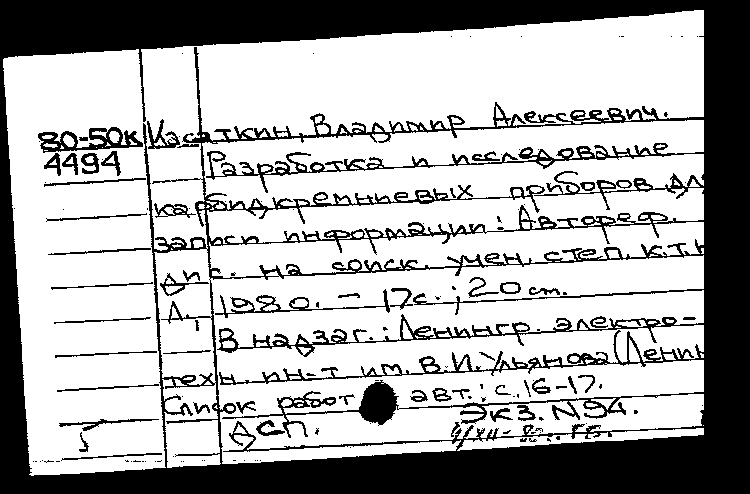 80-50к Касаткин, Владимир Алексеевич.
4494 Разработка и исследование
карбидкремниевых приборов дл
записи информации: Автореф.
дис. на соиск. учен. степ. к.т.н
Л., 1980. - 17с.; 20 см.
В надзаг.: Ленингр. электро-
техн. ин-т им. В.И. Ульянова (Ленин
Список работ авт.: с. 16-17.
Экз. N94.
5 ДСП.